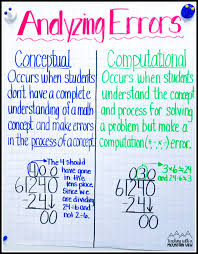 Analyzing Errors
Conceptual
Occurs when students
don't have a complete
understanding of a math
concept and make errors
in the process of a concept
Computational
Occurs when students
understand the concept
and process for solving
a problem but make a
computation (+,-,x,÷) error.
00
6)240
-24
00
The 4 should
have gone
in the tens
place. Since
we are dividing
24÷6 and
not 2÷6.
030
6)240
-24
00
3×6≠24
and 24÷6≠3
Teaching with a
MOUNTAIN VIEW